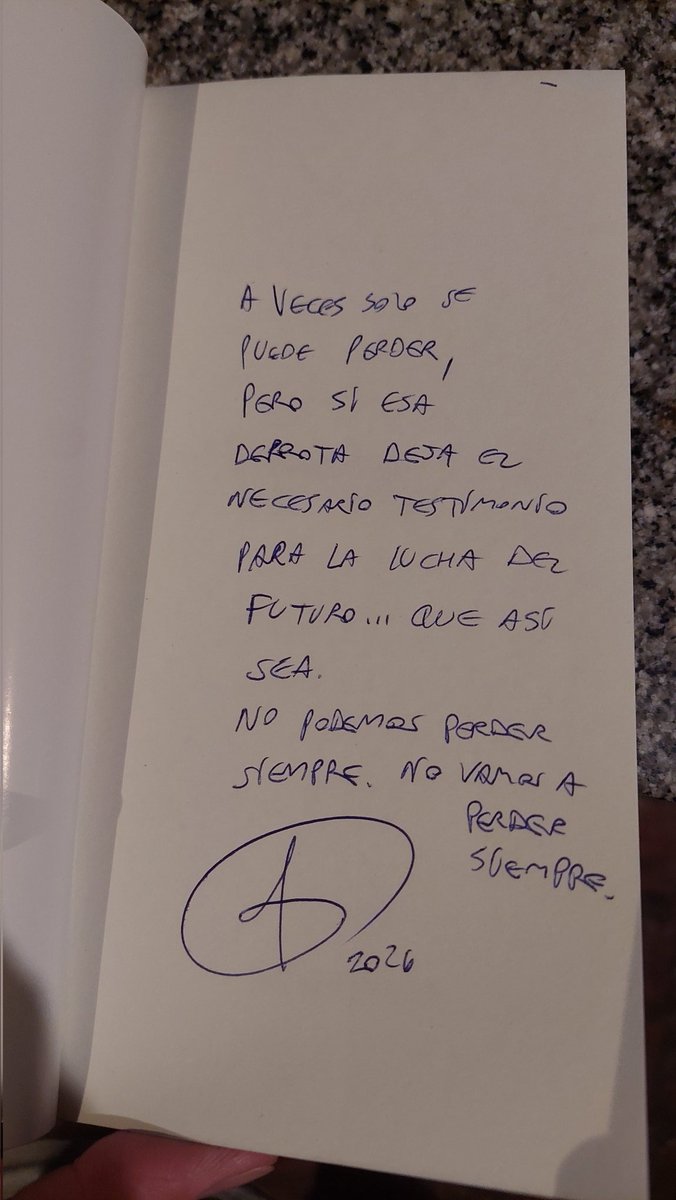 A VECES SOLO SE
PUEDE PERDER,
PERO SI ESA
DERROTA DEJA EL
NECESARIO TESTIMONIO
PARA LA LUCHA DEL
FUTURO... QUE ASÍ
SEA.
NO PODEMOS PERDER
SIEMPRE. NO VAMOS A
PERDER
SIEMPRE.
2026